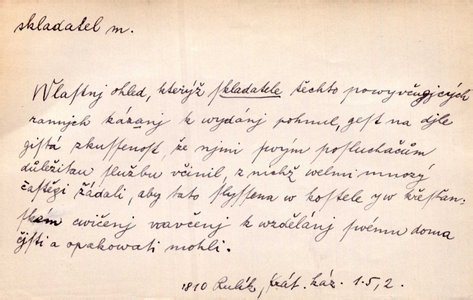 skladatel m.
Wlastnj ohled, kterýž skladatele těchto powyučugjcých
ranných kázanj k wydánj pohnul, gest na djle
gistá zkussenost, že njmi swým posluchačům
důležitau službu včinil, z nichž welmi mnozý
častěgi žádali, aby tato slyssena w kostele y w křesťan-
ském cwičenj naučenj k wzdělánj swému doma
čjsti a opakowati mohli.
1810 Rulík, Krát. káz. 1.5, 2.